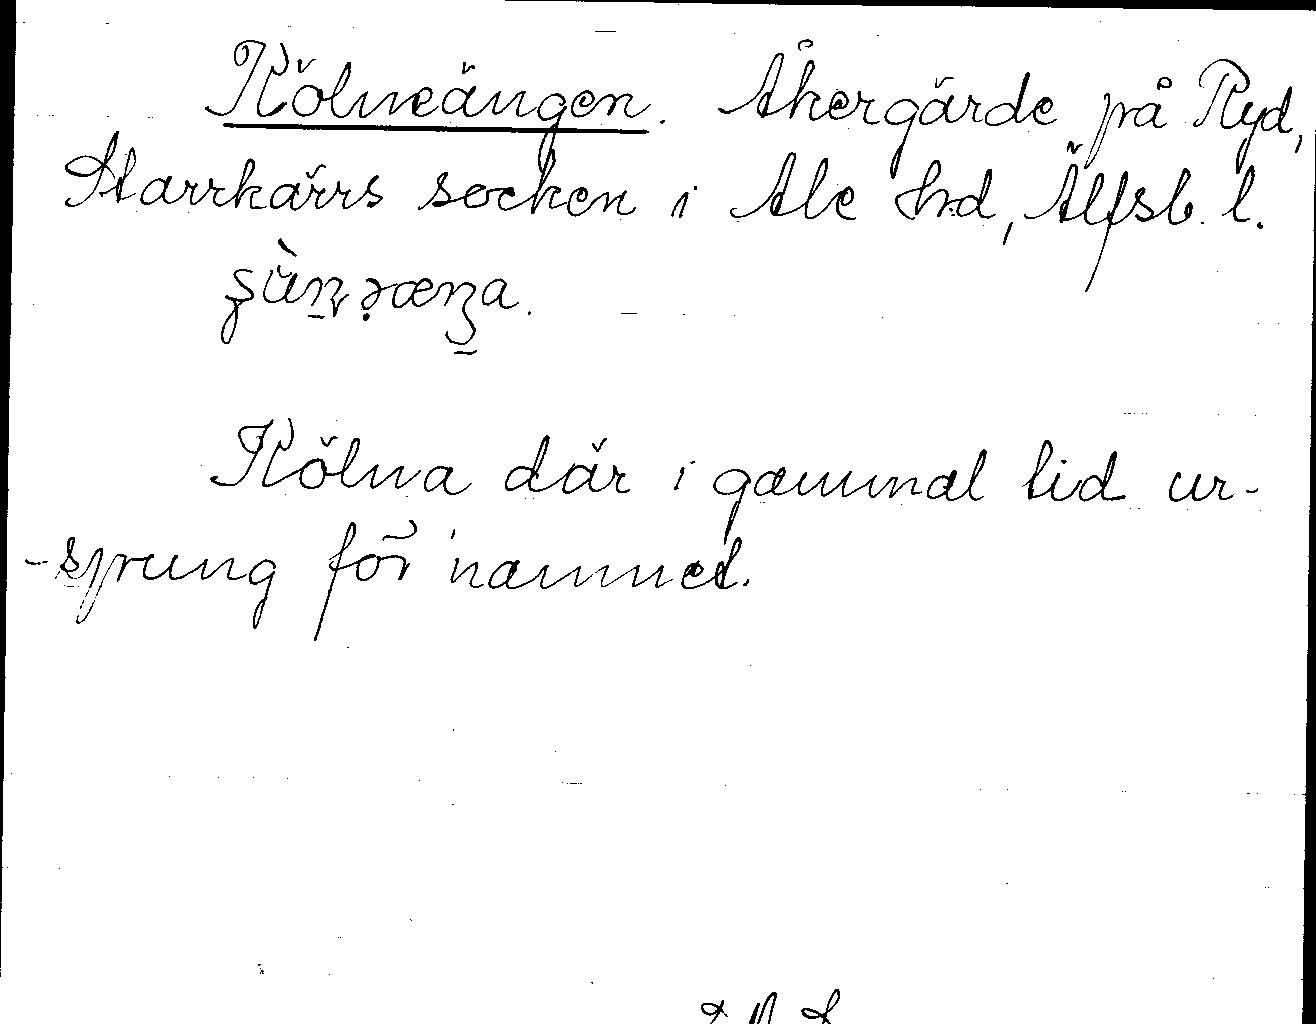 Kölneängen. Åkergärde på Ryd,
Starrkärrs socken i Ale hrd, Älfsb. l.
Kölna där i gammal tid ur-
-sprung för namnet.